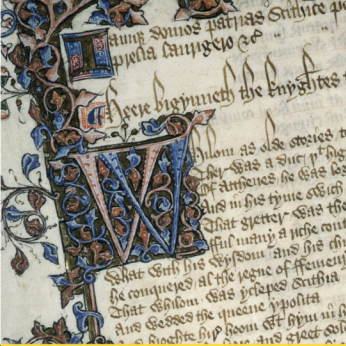 iamqz domos patrias Scithice p
prelia laurigero &c
Heere bigynneth the knyghtes t
Whilom as olde stories t
Ther was a duc þt hig
Of Atthenes he was lor
And in his tyme swich
That gretter was the
fful many a riche con
What with his wysdom and his ch
he conquered al the regne of ffemeny
That whilom was ycleped Scithia
and wedded the queene ypolita
And broghte hir hoom wt hym in h
and greet sol